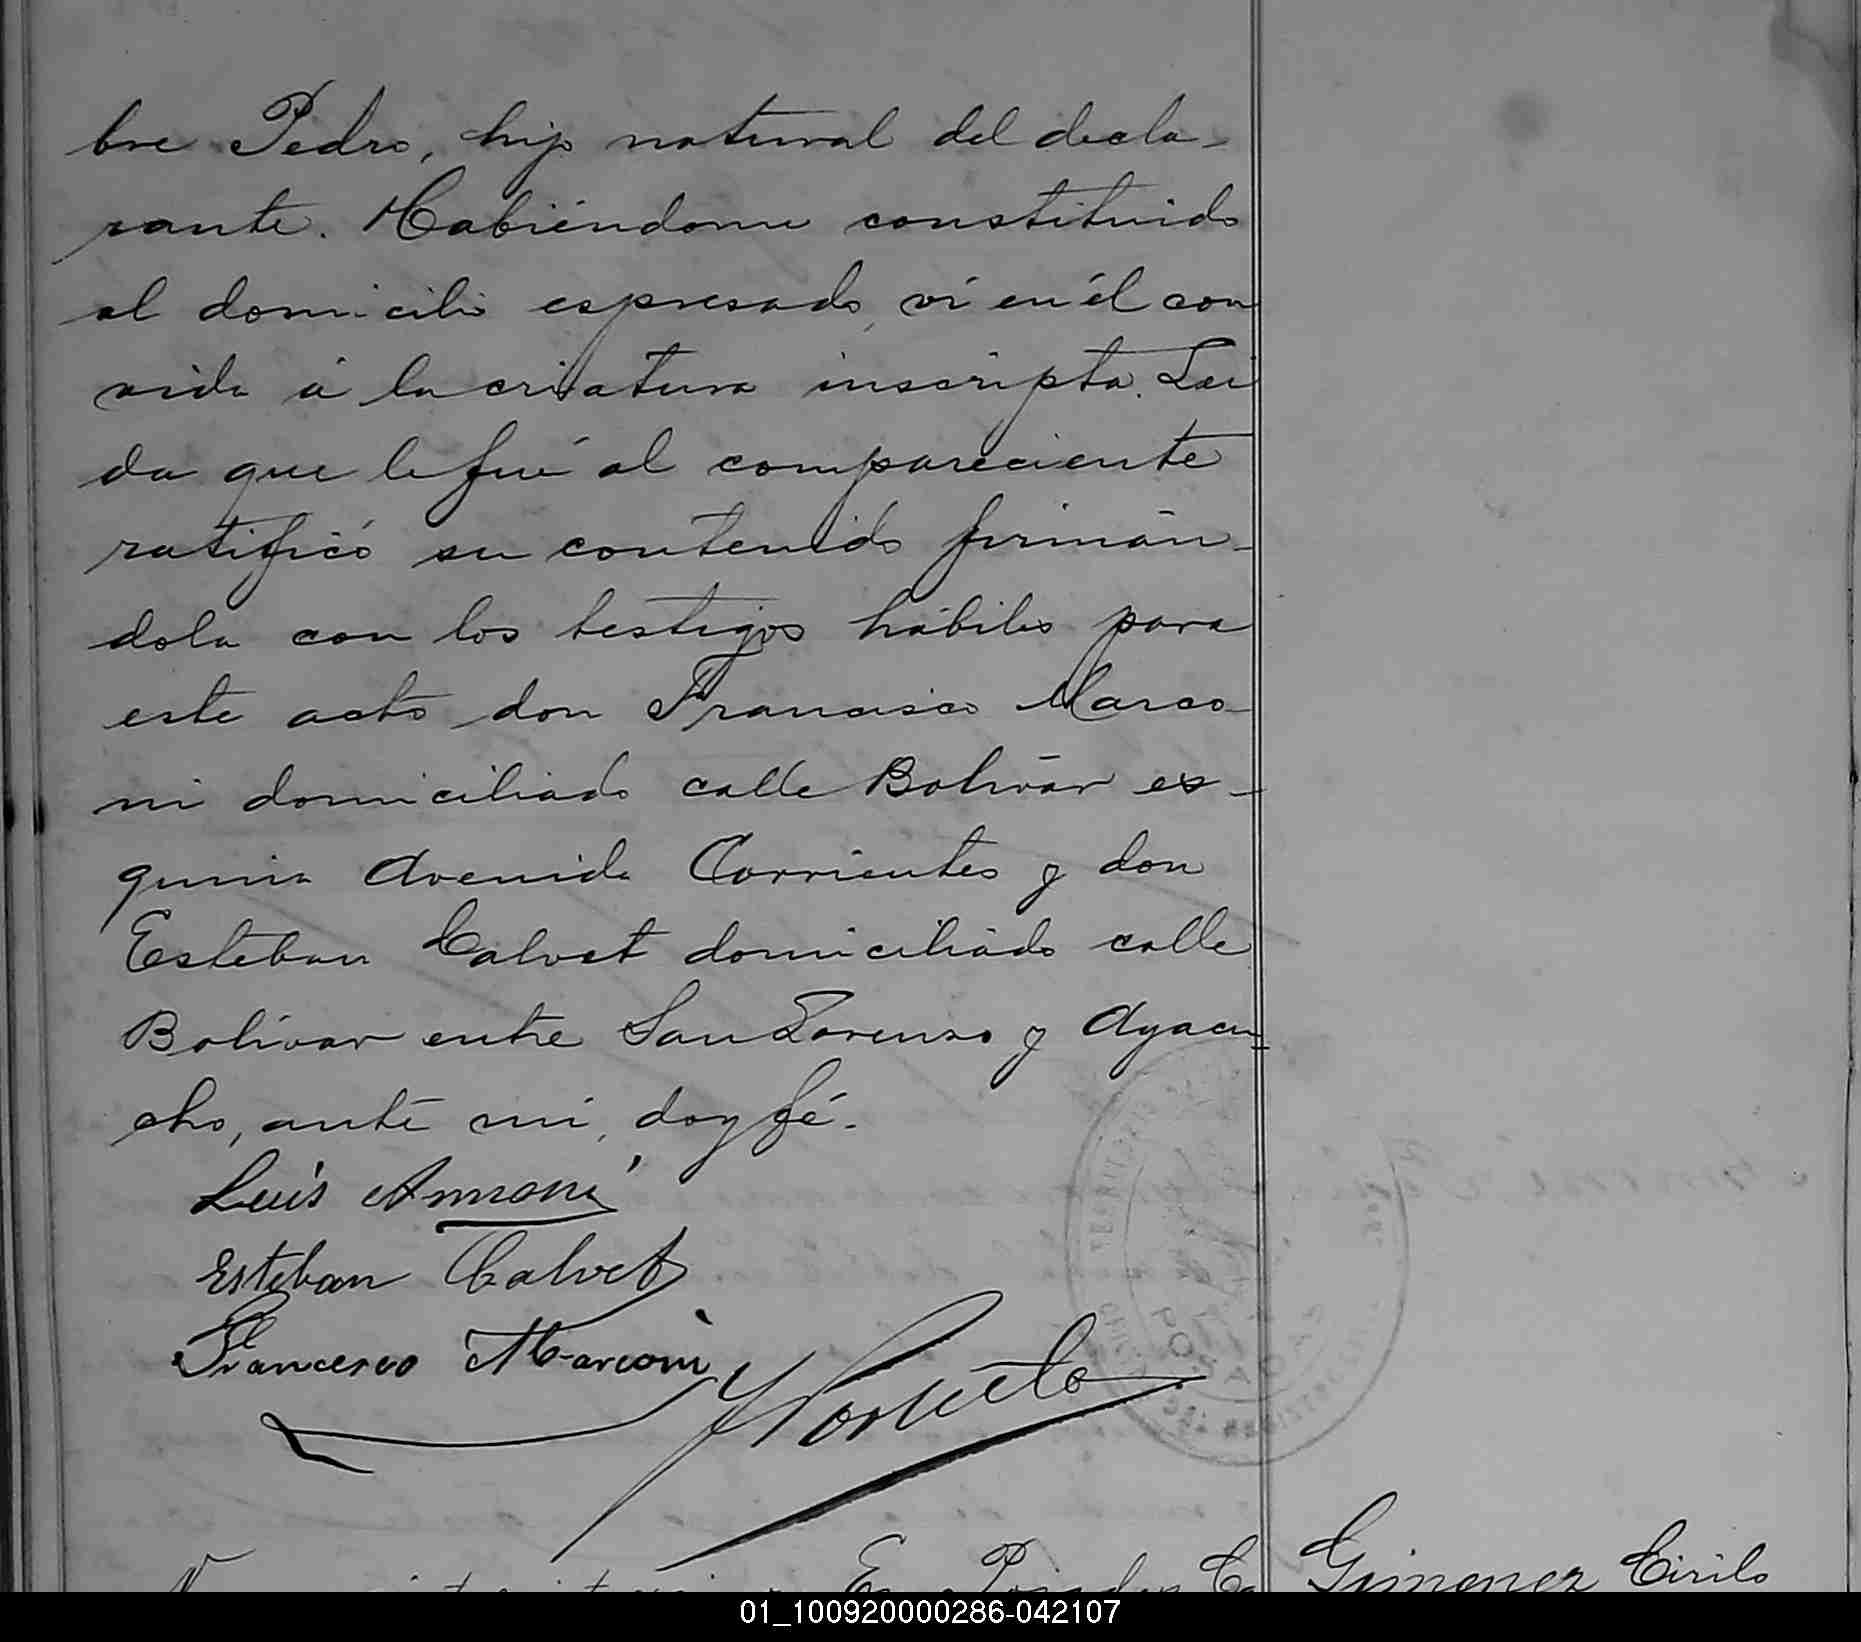 bre Pedro, hijo natural del decla-
rante. Habiéndome constituido
al domicilio espresado, ví en él con
vida á la criatura inscripta. Lei
da que le fué al compareciente
ratificó su contenido firmán-
dola con los testigos hábiles para
este acto don Francisco Marco-
ni domiciliado calle Bolívar es-
quina Avenida Corrientes y don
Esteban Calvet domiciliado calle
Bolívar entre San Lorenzo y Ayacu-
cho, ante mí, doy fé.
Luis Annoni
Esteban Calvet
Francesco Marconi
En Posadas Ca
Gimenez Cirilo
01_100920000286-042107